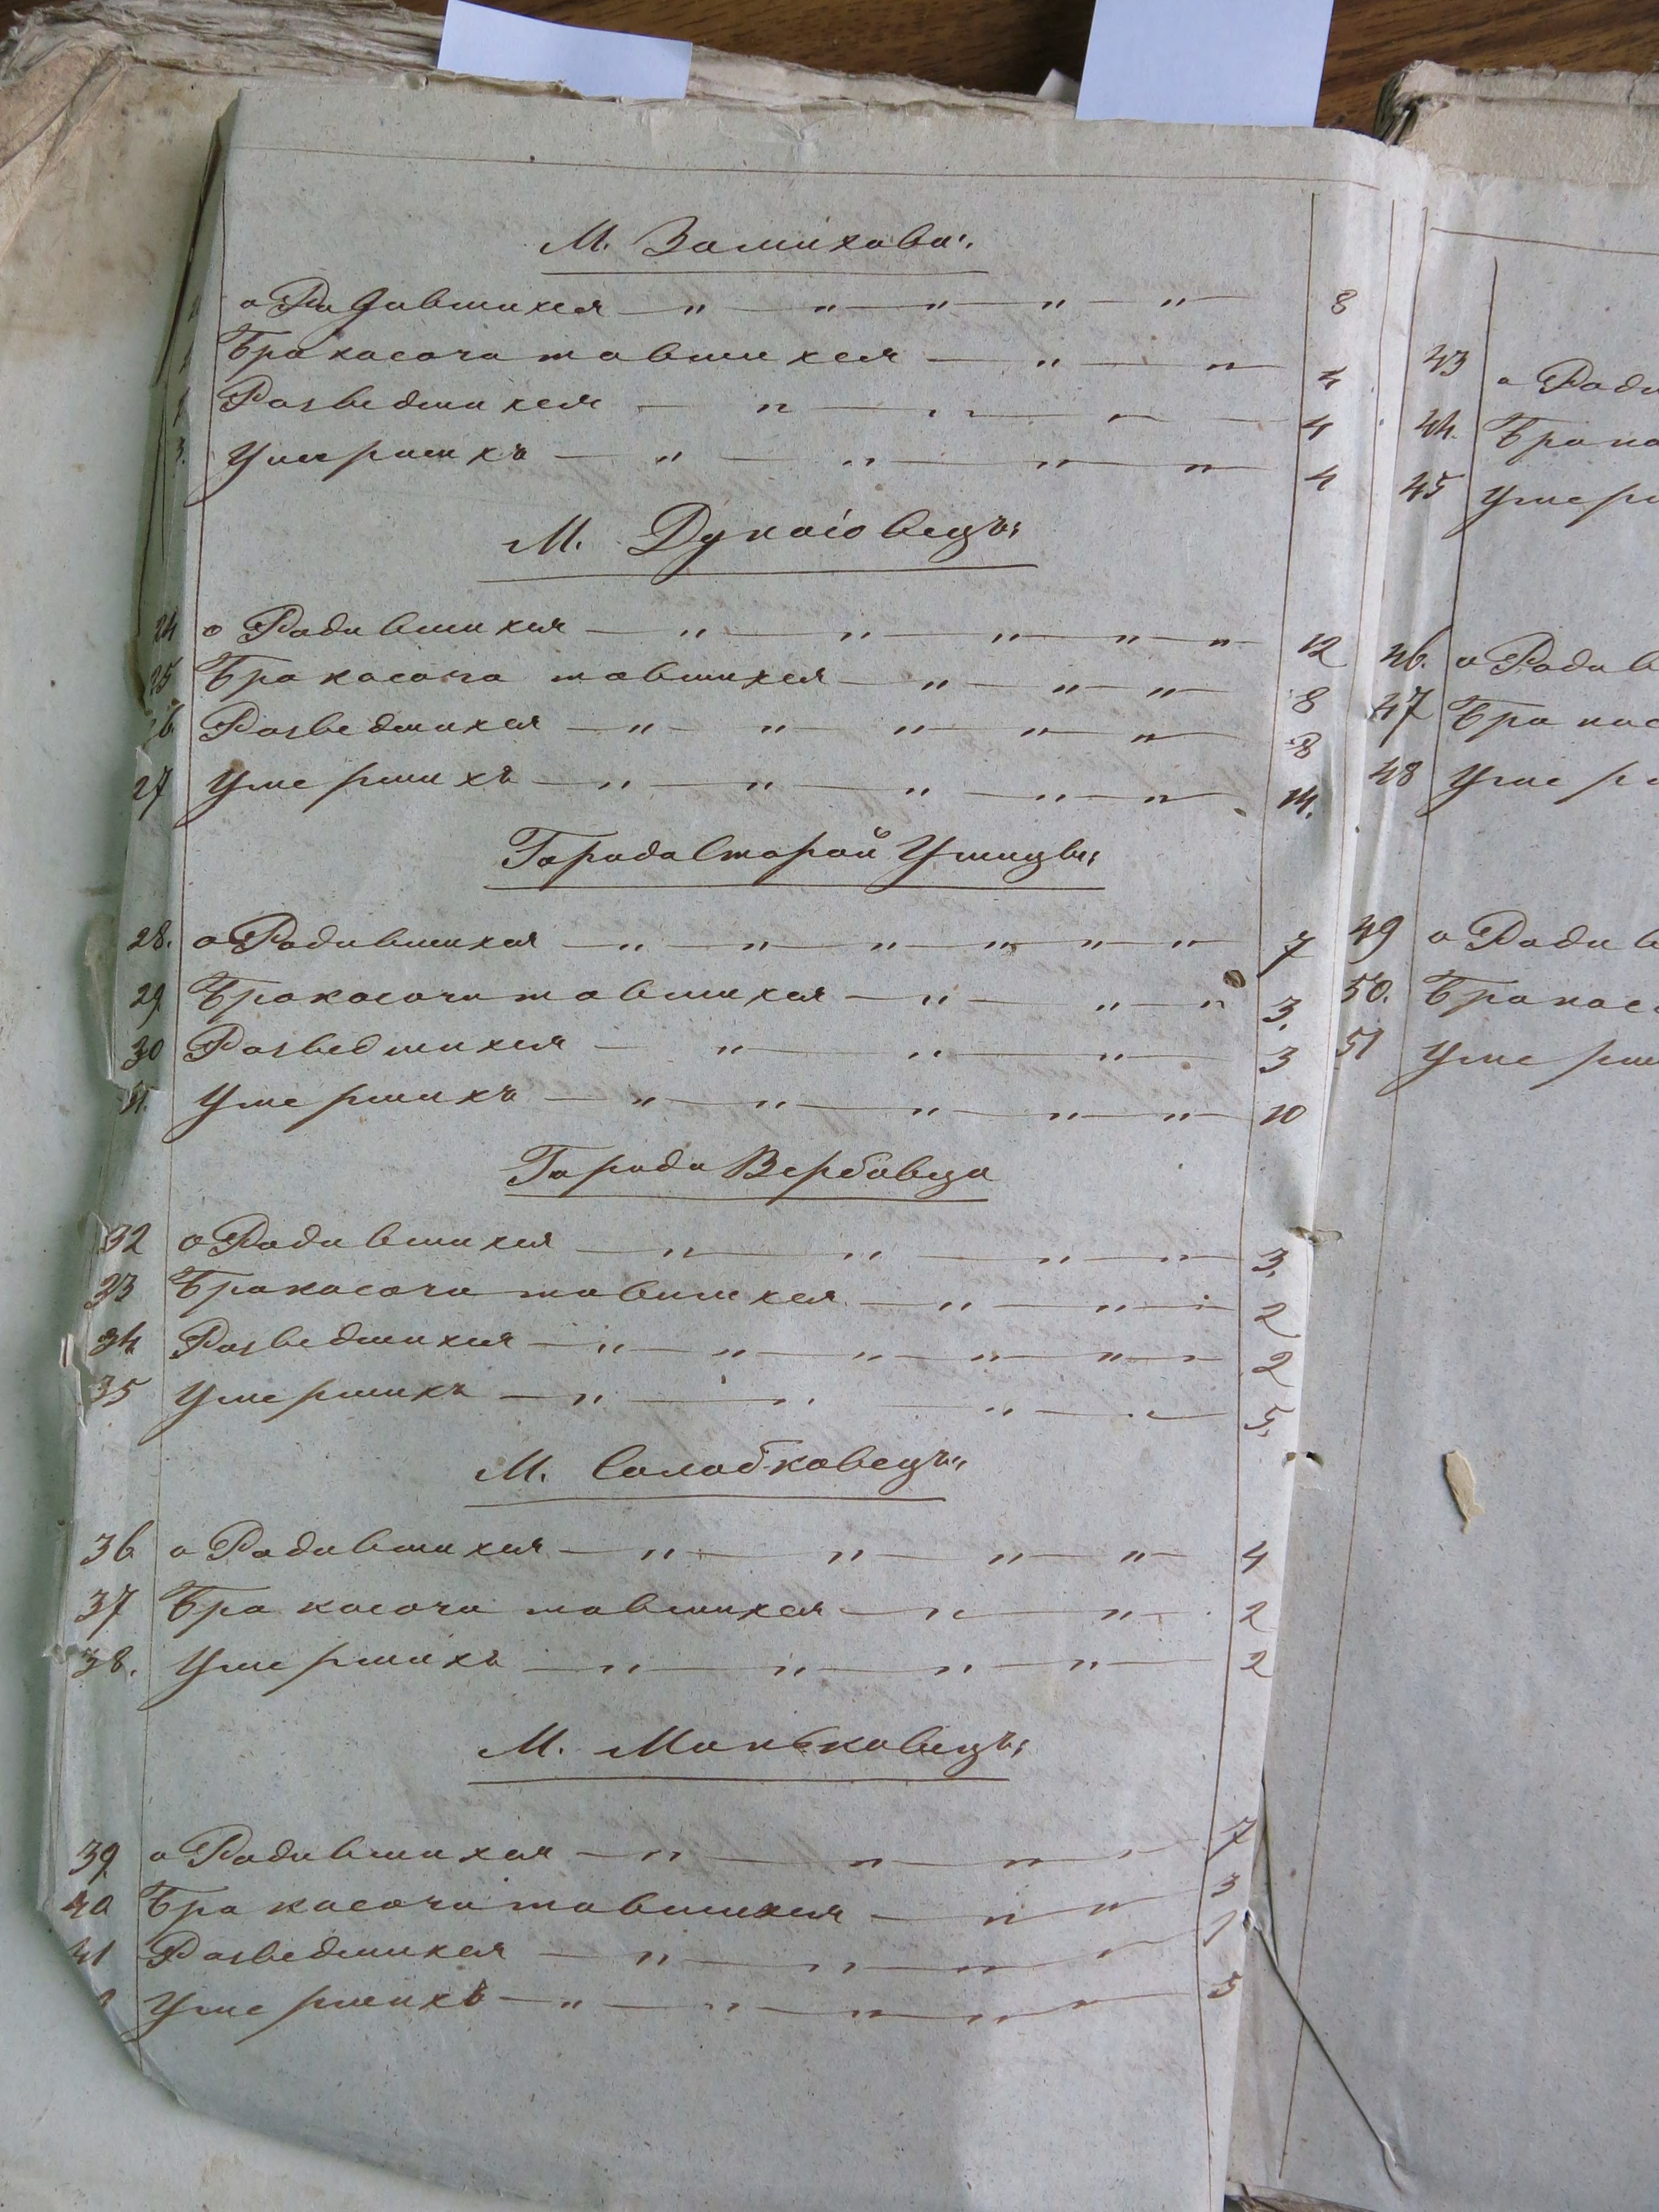 М. Замихова.
о Родившихся — " — " — " — " — " — 8
Бракосочитавшихся — " — " — 4
Разведшихся — " — " — " — 4
3. Умершихъ — " — " — " — " — 4
М. Дунаiовецъ:
24 о Родившихся — " — " — " — " — " — 12
25 Бракосочитавшихся — " — " — " — 8
26 Разведшихся — " — " — " — " — " — 8
27 Умершихъ — " — " — " — " — " — 14.
Города Старой Ушицы:
28. о Родившихся — " — " — " — " — " — " — 7
29 Бракосочитавшихся — " — " — " 3.
30 Разведшихся — " — " — " — 3
31. Умершихъ — " — " — " — " — " — 10
Города Вербовца
32 о Родившихся — " — " — " — " — 3.
33 Бракосочитавшихся — " — " — 2
34 Разведшихся — " — " — " — " — " — " 2
35 Умершихъ — " — " — " — " — 5.
М. Солобковецъ:
36 о Родившихся — " — " — " — " — 4
37 Бракосочитавшихся — " — " — 2
38. Умершихъ — " — " — " — " — 2
М. Миньковецъ:
39 о Родившихся — " — " — " — 7
40 Бракосочитавшихся — " — " — 3
41 Разведшихся — " — " — " — " — 1
Умершихъ — " — " — " — " — " — 5
43 о Роди
44. Брако
45 Умер
46. о Родив
47 Бракос
48 Умер
49 о Родив
50. Бракос
51 Умерш